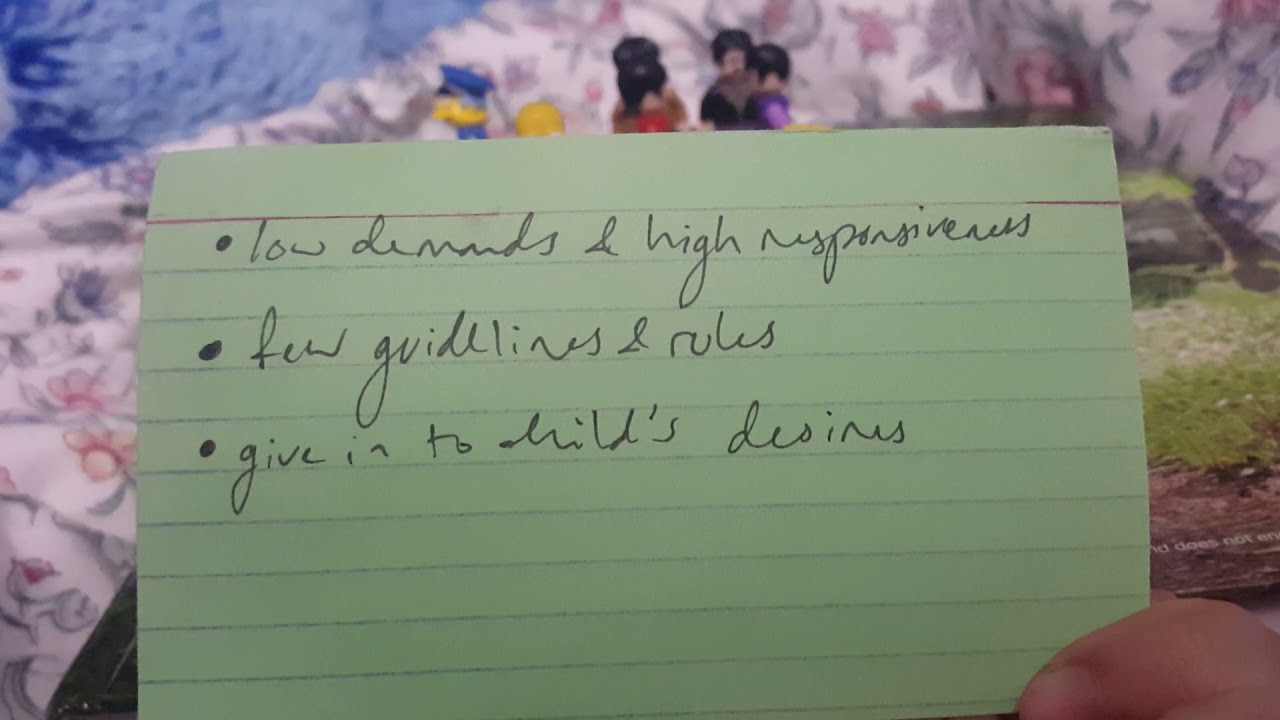 • low demands & high responsiveness
• few guidelines & rules
• give in to child's desires
nd does not en